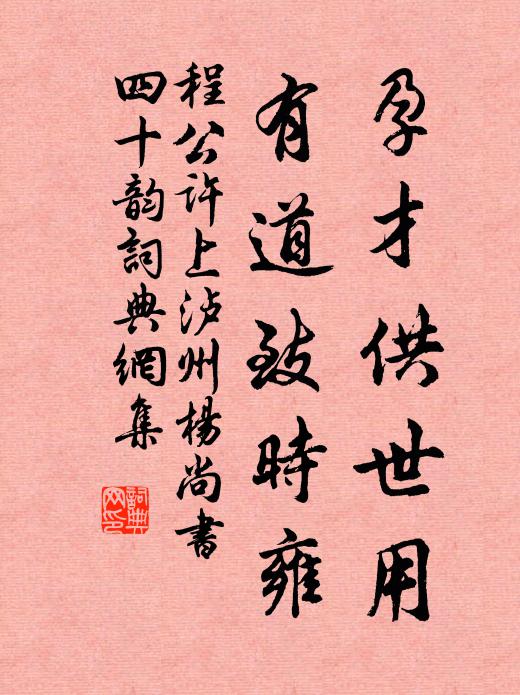 孕才供世用
有道致時雍
程公许上泸州楊尚書
四十韵詞典網集
詞典
网印